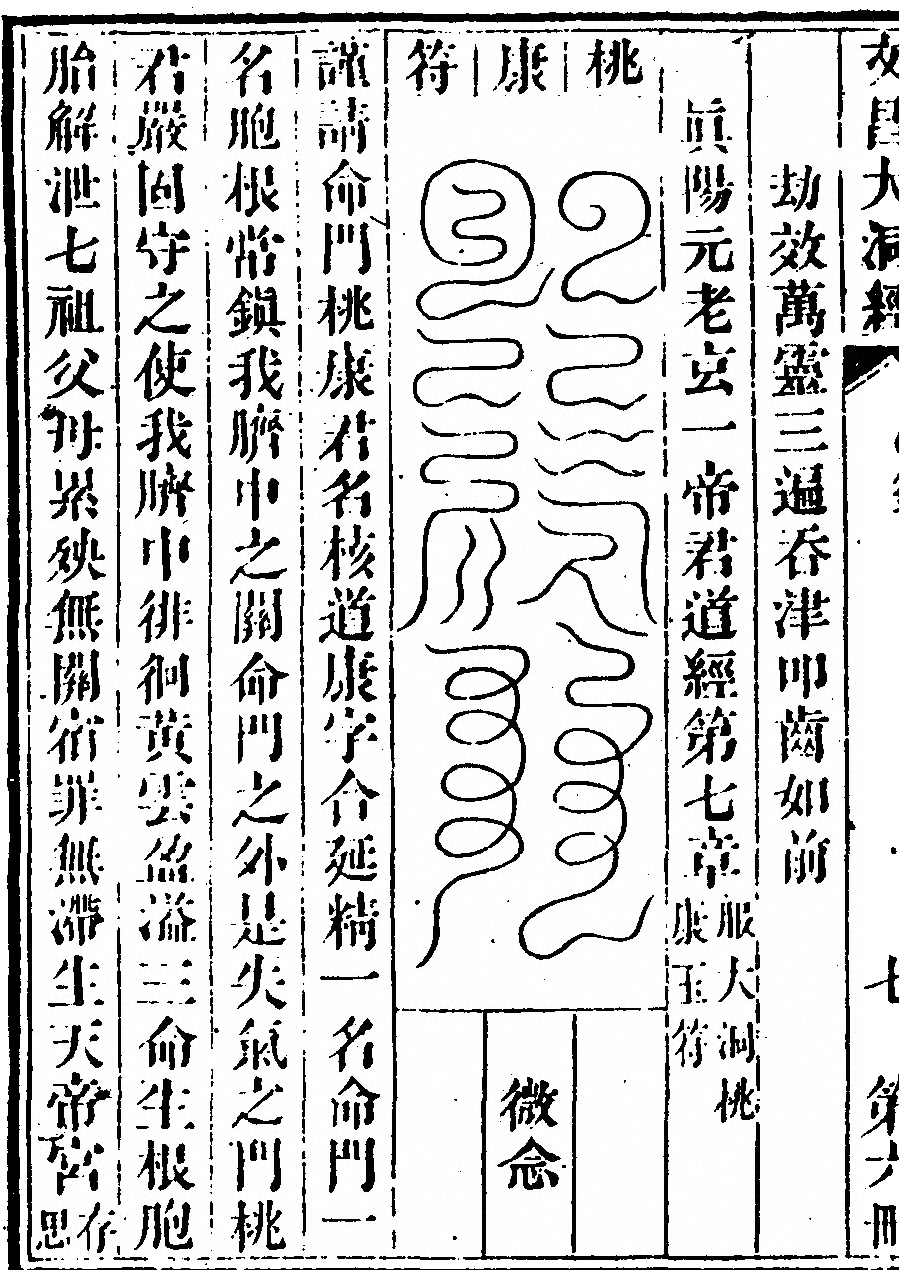 文昌大洞經
七
第六冊
劫效萬靈三遍吞津叩齒如前
眞陽元老玄一帝君道經第七章
服大洞桃
康玉符
桃康符
微念
謹請命門桃康君名核道康字合延精一名命門一
名胞根常鎭我臍中之關命門之外是失氣之門桃
君嚴固守之使我臍中徘徊黃雲盈溢三命生根胞
胎解泄七祖父母累殃無關宿罪無滯生天帝宮
存思